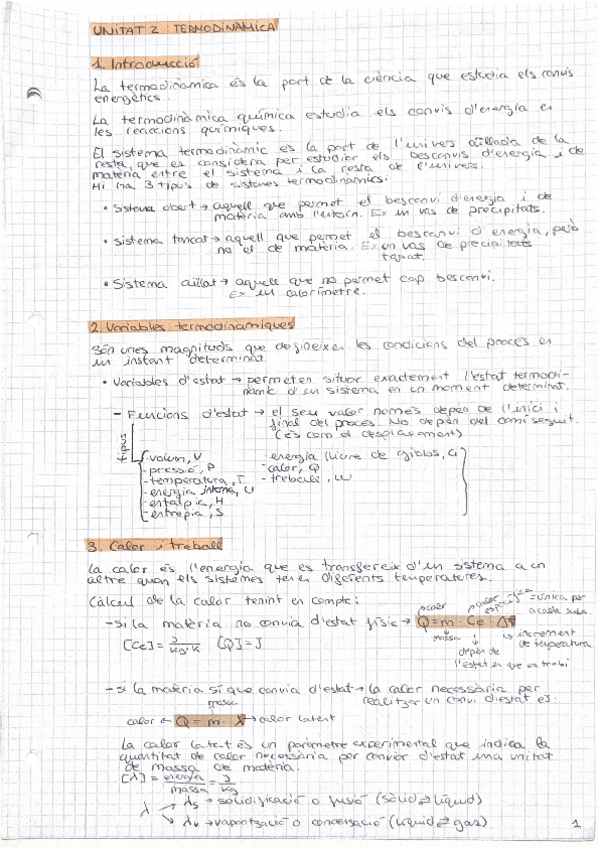 UNITAT 2: TERMODINÀMICA
1. Introducció
La termodinàmica és la part de la ciència que estudia els canvis
energètics.
La termodinàmica química estudia els canvis d'energia en
les reaccions químiques.
El sistema termodinàmic és la part de l'univers aïllada de la
resta, que es considera per estudiar els bescanvis d'energia i de
matèria entre el sistema i la resta de l'univers.
Hi ha 3 tipus de sistemes termodinàmics:
• Sistema obert → aquell que permet el bescanvi d'energia i de
matèria amb l'entorn. Ex un vas de precipitats.
• Sistema tancat → aquell que permet el bescanvi d'energia, però
no el de matèria. Ex un vas de precipitats
tapat.
• Sistema aïllat → aquell que no permet cap bescanvi.
Ex un calorímetre.
2. Variables termodinàmiques
Són unes magnituds que defineixen les condicions del procés en
un instant determinat.
• Variables d'estat → permeten situar exactament l'estat termodi-
nàmic d'un sistema en un moment determinat.
- Funcions d'estat → el seu valor només depèn de l'inici i
final del procés. No depèn del camí seguit.
(és com el desplaçament)
tipus
- volum, V
- energia lliure de Gibbs, G
- pressió, P
- calor, Q
- temperatura, T
- treball, W
- energia interna, U
- entalpia, H
- entropia, S
3. Calor i treball
La calor és l'energia que es transfereix d'un sistema a un
altre quan els sistemes tenen diferents temperatures.
Càlcul de la calor tenint en compte:
calor
calor específic
= única per
a cada subs.
- si la matèria no canvia d'estat físic → Q = m · Ce · Δt
[Ce] = J / kg·K [Q] = J
massa
depèn de
l'estat en que es trobi
increment
de temperatura
- si la matèria sí que canvia d'estat → la calor necessària per
realitzar un canvi d'estat és:
massa
calor ← Q = m · λ → calor latent
La calor latent és un paràmetre experimental que indica la
quantitat de calor necessària per canviar d'estat una unitat
de massa de matèria.
[λ] = energia / massa = J / kg
λ → λs = solidificació o fusió (sòlid ⇄ líquid)
→ λv → vaporització o condensació (líquid ⇄ gas)
1